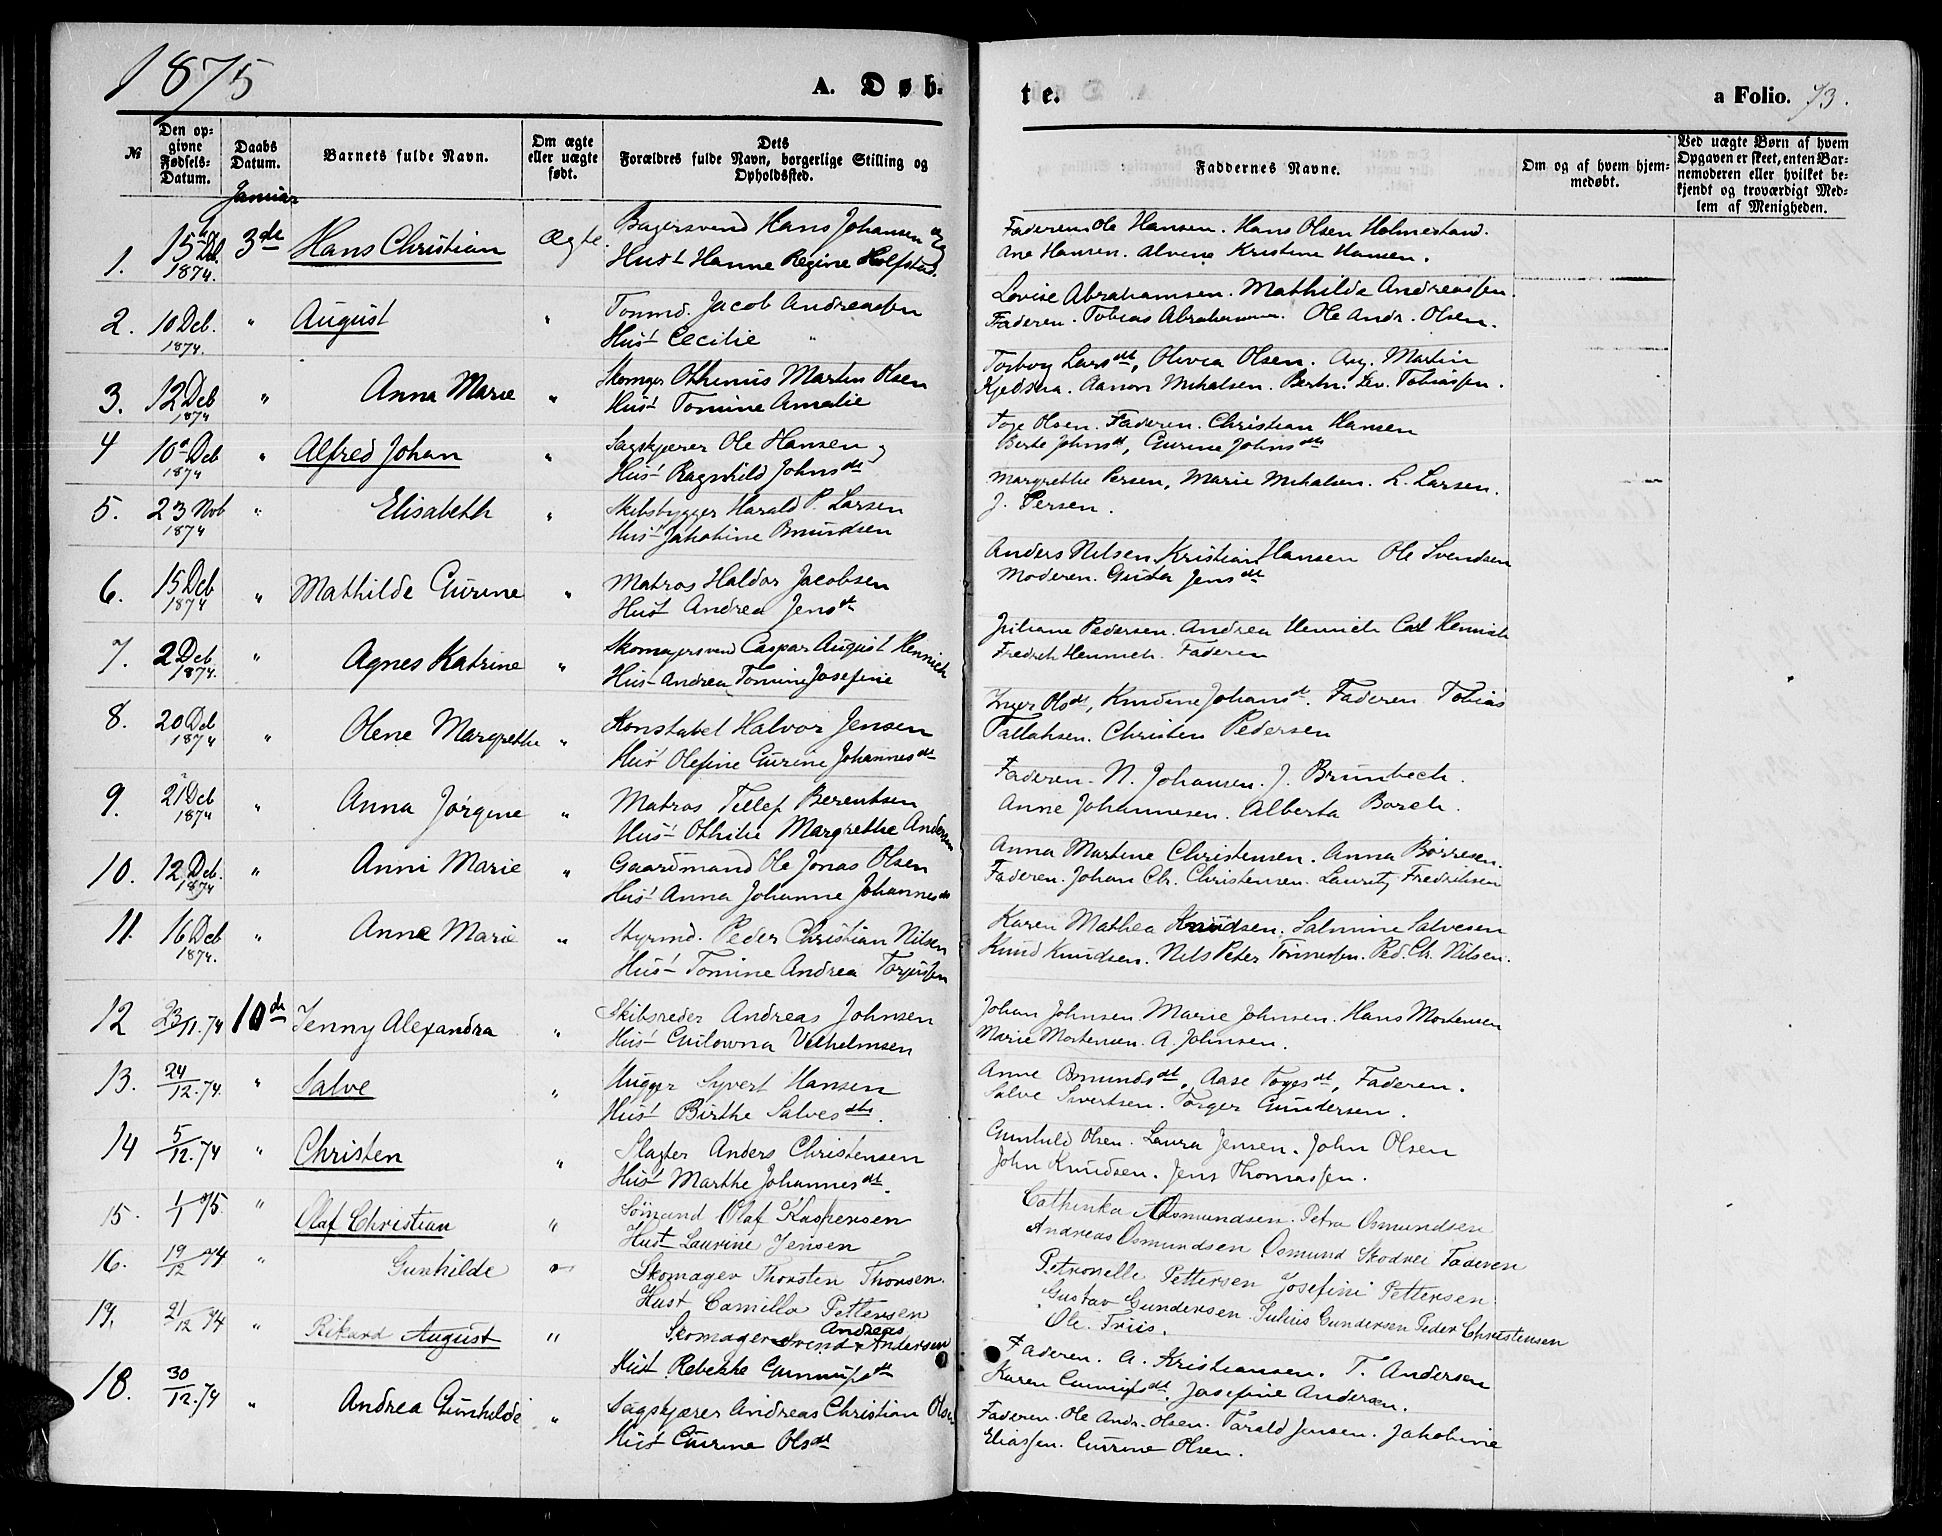 1875
A. Døb-
te.
a Folio. 73.
№
Den op-
givne
Fødsels-
Datum.
Daabs
Datum.
Barnets fulde Navn.
Om ægte
eller uægte
født.
Dets
Forældres fulde Navn, borgerlige Stilling og
Opholdssted.
Faddernes Navne.
Om og af hvem hjem-
medøbt.
Ved uægte Børn af hvem
Opgaven er skeet, enten Bar-
nemoderen eller hvilket be-
kjendt og troværdigt Med-
lem af Menigheden.
Januar
1. 15 Deb. 1874. 3de Hans Christian Ægte. Bagersvend Hans Johansen og
Hust Hanne Regine
Faderen Ole Hansen. Hans Olsen Holmestrand.
Ane Hansen. Alvine Kristine Hansen.
2. 10 Deb. 1874. " August " Tømmd. Jacob Andreassen
Hust Cecilie "
Lovise Abrahamsen. Mathilde Andreassen.
Faderen. Tobias Abrahamsen. Ole Andr. Olsen.
3. 12 Deb 1874 " Anna Marie " Skomger Othinius Martin Olsen
Hust Tomine Amalie
Torborg Larsdt, Olivia Olsen. Aug. Martin
Aanon Mikalsen. Tobiassen.
4 10 Deb 1874 " Alfred Johan " Sagskjærer Ole Hansen
Hust Ragnhild Johnsdt
Toje Olsen. Faderen. Christian Hansen
Berte Johnsdt, Gurine Johnsdt
5. 23 Nob 1874 " Elisabeth " Skibsbygger Harald P. Larsen
Hust Jakobine Omundsen
Margrethe Persen, Marie Mikalsen. L. Larsen.
J. Persen.
6. 15 Deb 1874 " Mathilde Gurine " Matros Haldor Jacobsen
Hust Andrea Jensdt
Anders Nilsen Kristian Hansen Ole Svendsen
Moderen. Gusta Jensdt
7. 2 Deb 1874. " Agnes Katrine " Skomagersvend Caspar August Hennich
Hust Andrea Tomine Josefine
Juliane Pedersen. Andrea Hennich Carl Hennich
Fredrik Hennich. Faderen
8. 20 Deb 1874 " Olene Margrethe " Konstabel Halvor Jensen
Hust Olefine Gurine Johannesdt
Inger Olsdt, Knudine Johansdt. Faderen Tobias
Tallaksen. Christen Pedersen
9. 21 Deb 1874 " Anna Jørgine " Matros Tellef Berentsen
Hust Othilie Margrethe Andersen
Faderen. N. Johansen. J. Brunbech.
Anne Johannesen. Alberta Borch.
10. 12 Deb. 1874 " Anni Marie " Gaardmand Ole Jonas Olsen
Hust Anna Johanne Johannesdt
Anna Martine Christensen. Anna Børresen.
Faderen. Johan Chr. Christensen. Lauritz Fredriksen
11. 16 Deb 1874. " Anne Marie " Styrmd. Peder Christian Nilsen
Hust Tomine Andrea Torjussen
Karen Mathea Knudsen. Salmine Salvesen
Knud Knudsen. Nils Peter Tønnessen. Ped. Chr. Nilsen.
12 23/11.74 10de Jenny Alexandra " Skibsreder Andreas Johnsen
Hust Vilhelmsen
Johan Johnsen. Marie Johnsen. Hans Mortensen
Marie Mortensen. A. Johnsen.
13. 24/12.74. " Salve " Hugger Syvert Hansen
Hust Birthe Salvesdtr.
Anne Omundsdt, Aase Togesdt, Faderen.
Salve Sivertsen. Torger Gundersen.
14 5/12.74 " Christen " Slagter Anders Christensen
Hust Marthe Johannesdt.
Gunhild Olsen. Laura Jensen. John Olsen
John Knudsen. Jens Thomassen.
15. 1/1 75. " Olaf Christian " Sømand Olaf Kaspersen
Hust Laurine Jensen
Cathinka Aasmundsen. Petra Osmundsen
Andreas Osmundsen Osmund Skodvei Faderen
16. 19/12 74 " Gunhilde " Skomager Thorsten Thorsen.
Hust Camilla Pettersen
Petronelle Pettersen Josefini Pettersen
Gustav Gundersen. Julius Gundersen Peder Christensen
Ole Friis.
17. 21/12 74 " Rikard August " Skomagersvend Andreas Andersen
Hust Rebekke Gunnufsdt
Faderen. A. Kristiansen. T. Andersen
Karen Gunnufsdt. Josefine Andersen.
18. 30/12.74 " Andrea Gunhilde " Sagskjærer Andreas Christian Olsen
Hust Gurine Olsdt
Faderen. Ole Andr. Olsen. Tarald Jensen. Jakobine
Eliassen. Gurine Olsen.